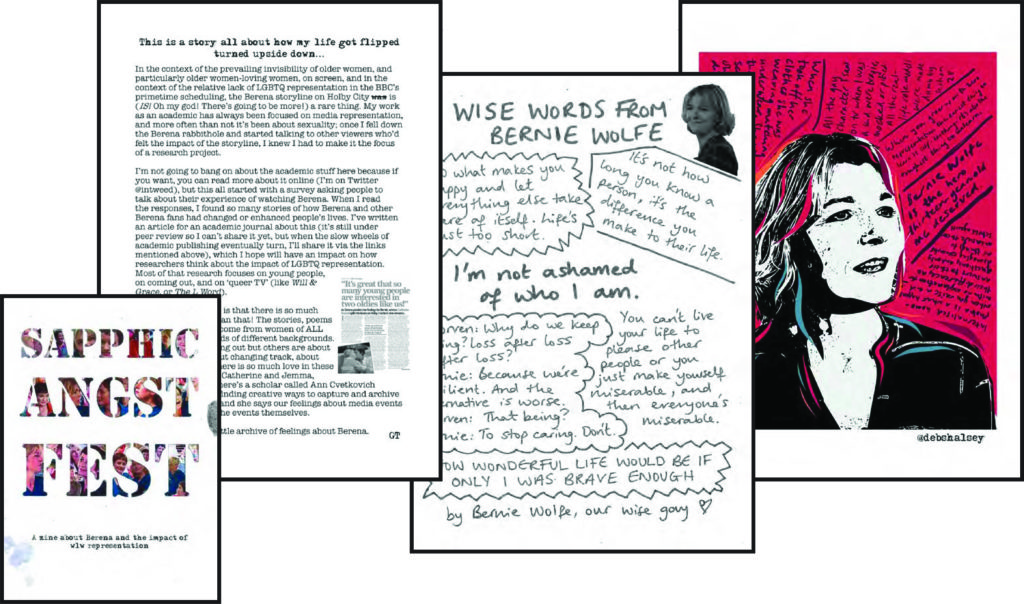 SAPPHIC
ANGST
FEST
A zine about Berena and the impact of
wlw representation
This is a story all about how my life got flipped
turned upside down...
In the context of the prevailing invisibility of older women, and
particularly older women-loving women, on screen, and in the
context of the relative lack of LGBTQ representation in the BBC's
primetime scheduling, the Berena storyline on Holby City was is
(IS! Oh my god! There's going to be more!) a rare thing. My work
as an academic has always been focused on media representation,
and more often than not it's been about sexuality; once I fell down
the Berena rabbithole and started talking to other viewers who'd
felt the impact of the storyline, I knew I had to make it the focus
of a research project.
I'm not going to bang on about the academic stuff here because if
you want, you can read more about it online (I'm on Twitter
@intweed), but this all started with a survey asking people to
talk about their experience of watching Berena. When I read
the responses, I found so many stories of how Berena and other
Berena fans had changed or enhanced people's lives. I've written
an article for an academic journal about this (it's still under
peer review so I can't share it yet, but when the slow wheels of
academic publishing eventually turn, I'll share it via the links
mentioned above), which I hope will have an impact on how
researchers think about the impact of LGBTQ representation.
Most of that research focuses on young people,
on coming out, and on 'queer TV' (like Will &
Grace, or The L Word).
is that there is so much
an that! The stories, poems
come from women of ALL
ds of different backgrounds.
ng out but others are about
ut changing track, about
ere is so much love in these
Catherine and Jemma,
here's a scholar called Ann Cvetkovich
inding creative ways to capture and archive
and she says our feelings about media events
he events themselves.
ttle archive of feelings about Berena.
GT
"It's great that so
many young people
are interested in
two oldies like us!"
WISE WORDS FROM
BERNIE WOLFE
o what makes you
ppy and let
erything else take
are of itself. Life's
ust too short.
It's not how
long you know a
person, it's the
difference you
make to their life.
I'm not ashamed
of who I am.
orven: Why do we keep
ing? Loss after loss
after loss?
nie: Because we're
ilient. And the
rnative is worse.
rven: That being?
nie: To stop caring. Don't.
You can't live
your life to
please other
people or you
just make yourself
miserable, and
then everyone's
miserable.
OW WONDERFUL LIFE WOULD BE IF
ONLY I WAS BRAVE ENOUGH
by Bernie Wolfe, our wife gay ♡
When she
took off her
clothes
Bernie Wolfe
is the hero
this teenager old
me deserved
@debshalsey